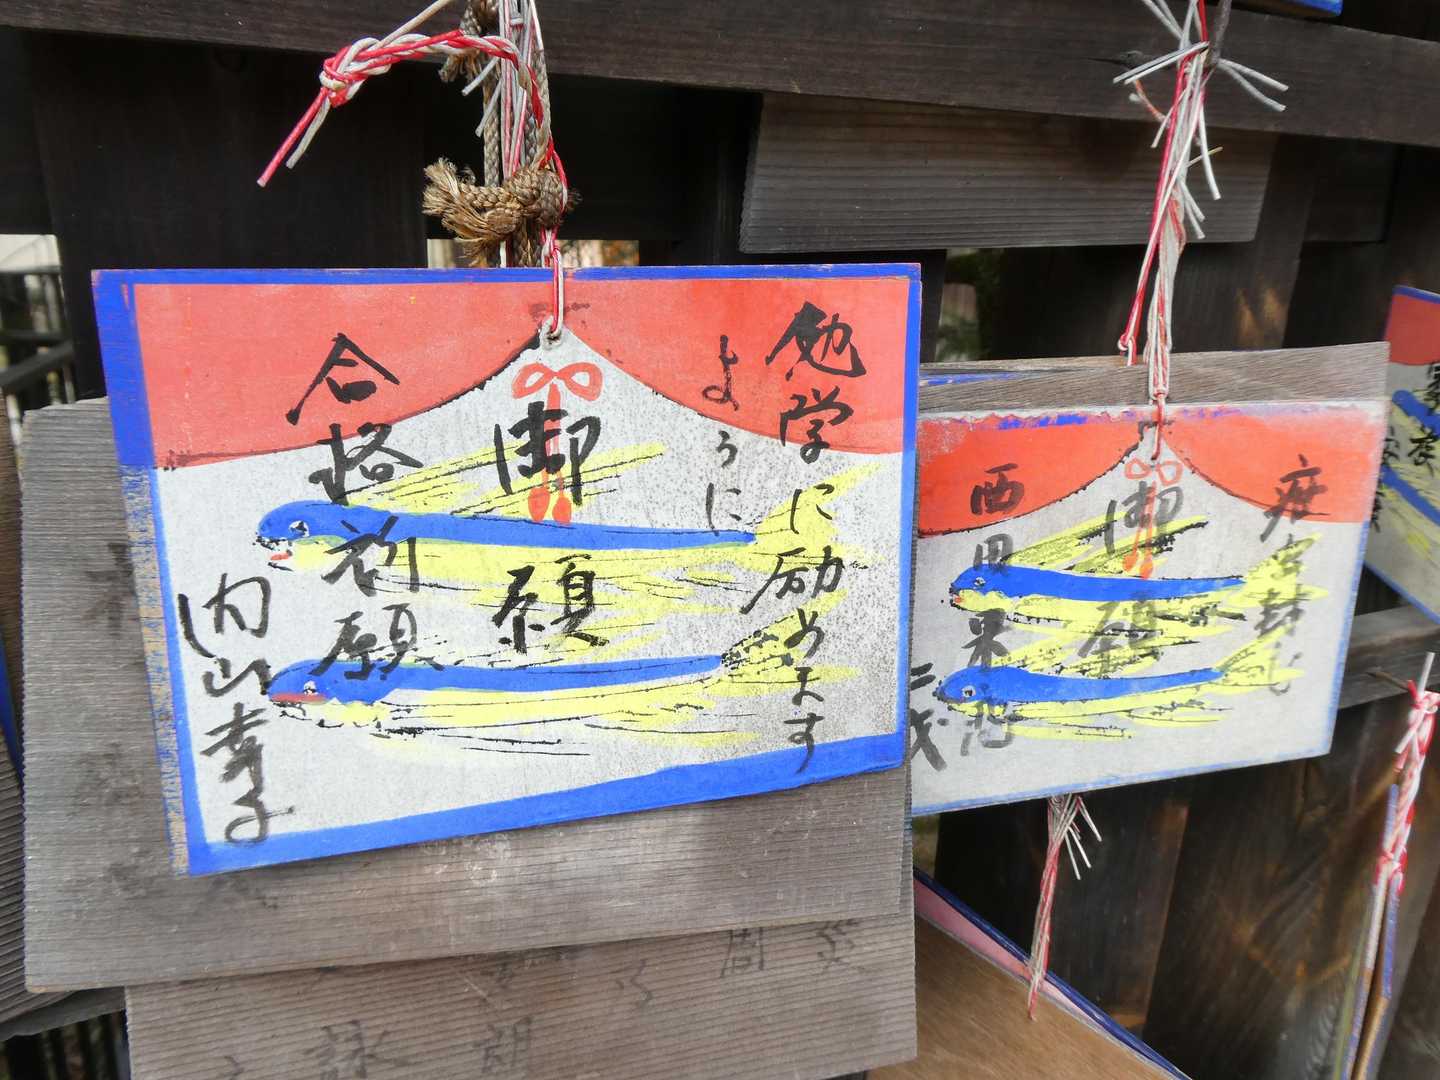 勉学に励めます
ように
御願
合格祈願
内山幸子
疳虫封じ
御願
西田果穂
二歳